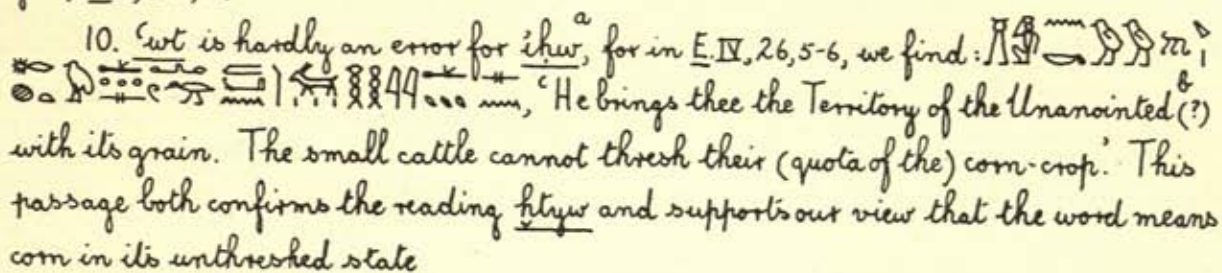 10. ꜥwt is hardly an error for ỉḥwᵃ, for in E.IV, 26, 5-6, we find:
, ‘He brings thee the Territory of the Unanointedᵇ(?)
with its grain. The small cattle cannot thresh their (quota of the) corn-crop.’ This
passage both confirms the reading ẖtyw and supports our view that the word means
corn in its unthreshed state